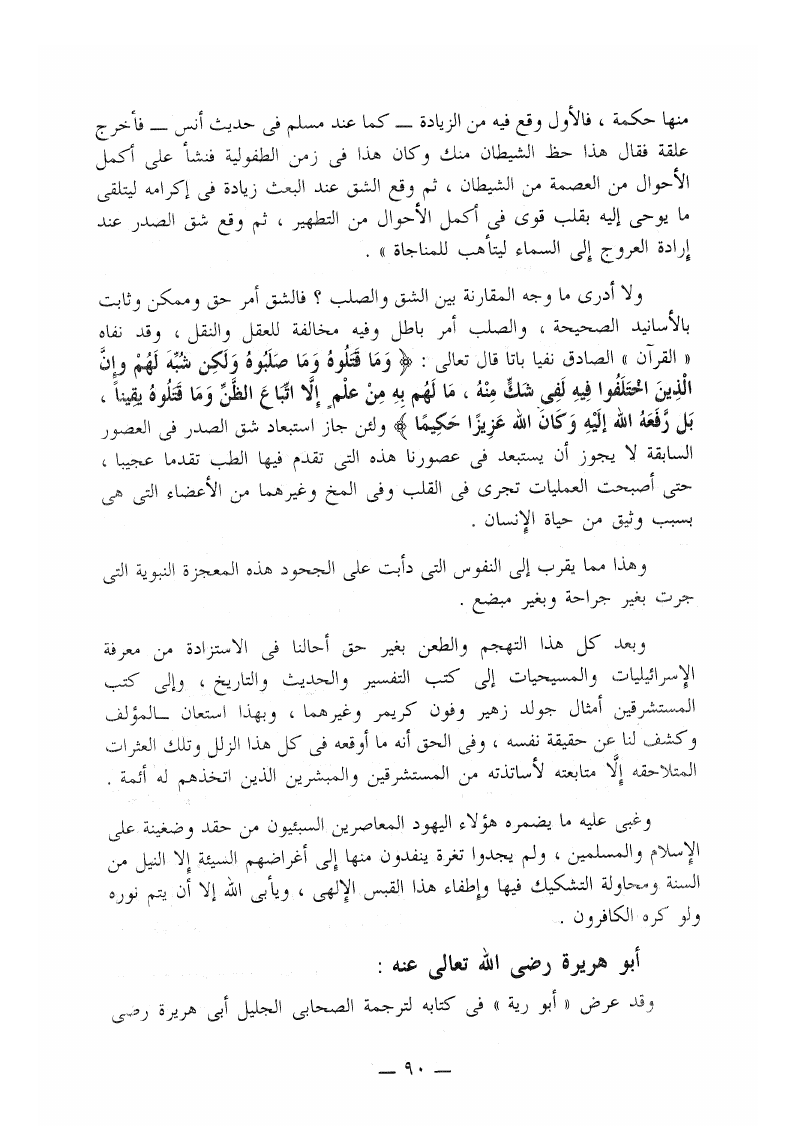 منها حكمة ، فالأول وقع فيه من الزيادة ــ كما عند مسلم فى حديث أنس ــ فأخرج
علقة فقال هذا حظ الشيطان منك وكان هذا فى زمن الطفولية فنشأ على أكمل
الأحوال من العصمة من الشيطان ، ثم وقع الشق عند البعث زيادة فى إكرامه ليتلقى
ما يوحى إليه بقلب قوى فى أكمل الأحوال من التطهير ، ثم وقع شق الصدر عند
إرادة العروج إلى السماء ليتأهب للمناجاة » .
ولا أدرى ما وجه المقارنة بين الشق والصلب ؟ فالشق أمر حق وممكن وثابت
بالأسانيد الصحيحة ، والصلب أمر باطل وفيه مخالفة للعقل والنقل ، وقد نفاه
« القرآن » الصادق نفيا باتا قال تعالى : ﴿ وَمَا قَتَلُوهُ وَمَا صَلَبُوهُ وَلَكِن شُبِّهَ لَهُمْ وإنَّ
الَّذِينَ اخْتَلَفُوا فِيهِ لَفِي شَكٍّ مِنْهُ ، مَا لَهُم بِهِ مِنْ عِلْمٍ إلَّا اتِّبَاعَ الظَّنِّ وَمَا قَتَلُوهُ يَقِيناً ،
بَل رَّفَعَهُ اللهُ إلَيْهِ وَكَانَ اللهُ عَزِيزًا حَكِيمًا ﴾ ولئن جاز استبعاد شق الصدر فى العصور
السابقة لا يجوز أن يستبعد فى عصورنا هذه التى تقدم فيها الطب تقدما عجيبا ،
حتى أصبحت العمليات تجرى فى القلب وفى المخ وغيرهما من الأعضاء التى هى
بسبب وثيق من حياة الإنسان .
وهذا مما يقرب إلى النفوس التى دأبت على الجحود هذه المعجزة النبوية التى
جرت بغير جراحة وبغير مبضع .
وبعد كل هذا التهجم والطعن بغير حق أحالنا فى الاستزادة من معرفة
الإسرائيليات والمسيحيات إلى كتب التفسير والحديث والتاريخ ، وإلى كتب
المستشرقين أمثال جولد زهير وفون كريمر وغيرهما ، وبهذا استعان ــالمؤلف
وكشف لنا عن حقيقة نفسه ، وفى الحق أنه ما أوقعه فى كل هذا الزلل وتلك العثرات
المتلاحقه إلَّا متابعته لأساتذته من المستشرقين والمبشرين الذين اتخذهم له أئمة .
وغبى عليه ما يضمره هؤلاء اليهود المعاصرين السبئيون من حقد وضغينة على
الإسلام والمسلمين ، ولم يجدوا ثغرة ينفدون منها إلى أغراضهم السيئة إلا النيل من
السنة ومحاولة التشكيك فيها وإطفاء هذا القبس الإلهى ، ويأبى الله إلا أن يتم نوره
ولو كره الكافرون .
أبو هريرة رضى الله تعالى عنه :
وقد عرض « أبو رية » فى كتابه لترجمة الصحابى الجليل أبى هريرة رضى
— ٩٠ —